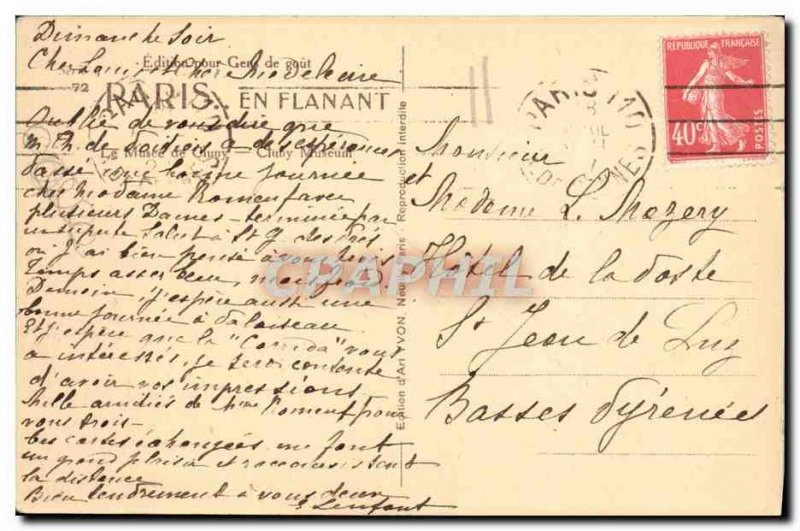 Dimanche soir
Edition pour Gens de goût
Cher Louis et chère Madeleine
Série
72
PARIS... EN FLANANT
Oublié de vous dire que
Le Musée de Cluny - Cluny Museum
passé une bonne journée
chez Madame Romenf avec
plusieurs Dames - terminée par
un Salut à St G. des Prés
où j'ai bien pensé à vous trois.
Temps assez beau, mais froid.
Demain j'espère aussi une
bonne journée à Palaiseau
Et j'espère que la "Corrida" vous
a intéressés, je serai contente
d'avoir vos impressions
Mille amitiés de Mme Romenf pour
vous trois -
Les cartes échangées me font
un grand plaisir et
la distance
Bien tendrement à vous deux
Lenfant
Edition d'Art YVON, Paris - Reproduction interdite
CPAPHIL
REPUBLIQUE FRANÇAISE
40c
POSTES
PARIS 110
Monsieur
et
Madame L. Mazery
Hôtel de la Poste
St Jean de Luz
Basses Pyrénées